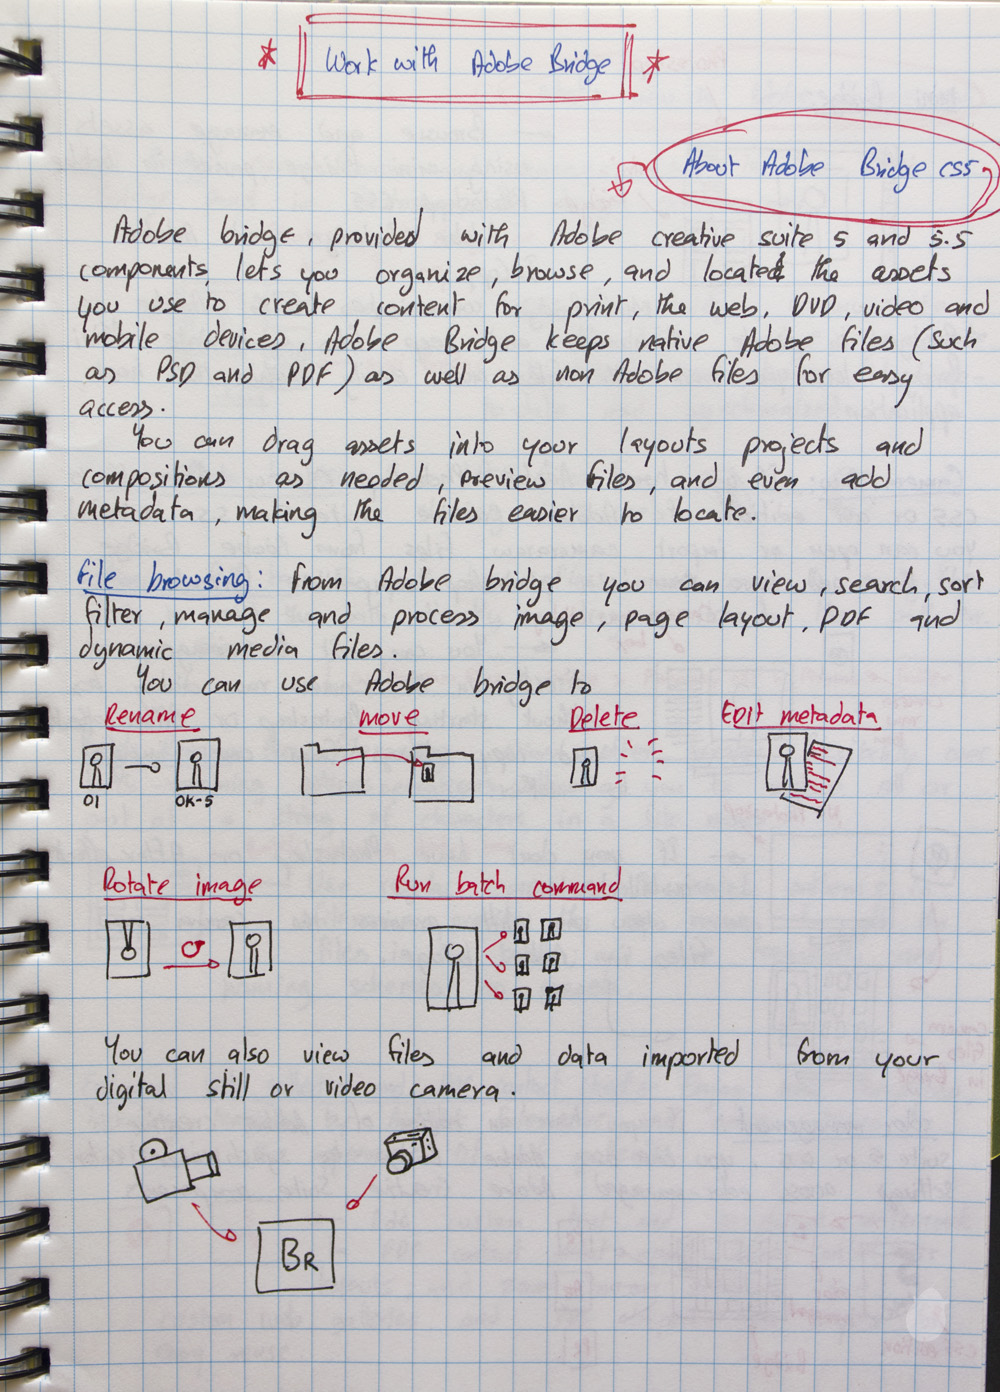 Work with Adobe Bridge
About Adobe Bridge CS5
Adobe bridge, provided with Adobe creative suite 5 and 5.5
components, lets you organize, browse, and locate the assets
you use to create content for print, the web, DVD, video and
mobile devices, Adobe Bridge keeps native Adobe files (such
as PSD and PDF) as well as non Adobe files for easy
access.
You can drag assets into your layouts projects and
compositions as needed, preview files, and even add
metadata, making the files easier to locate.
File browsing: from Adobe bridge you can view, search, sort
filter, manage and process image, page layout, PDF and
dynamic media files.
You can use Adobe bridge to
Rename move Delete Edit metadata
01 OK-5
Rotate image Run batch command
You can also view files and data imported from your
digital still or video camera.
BR